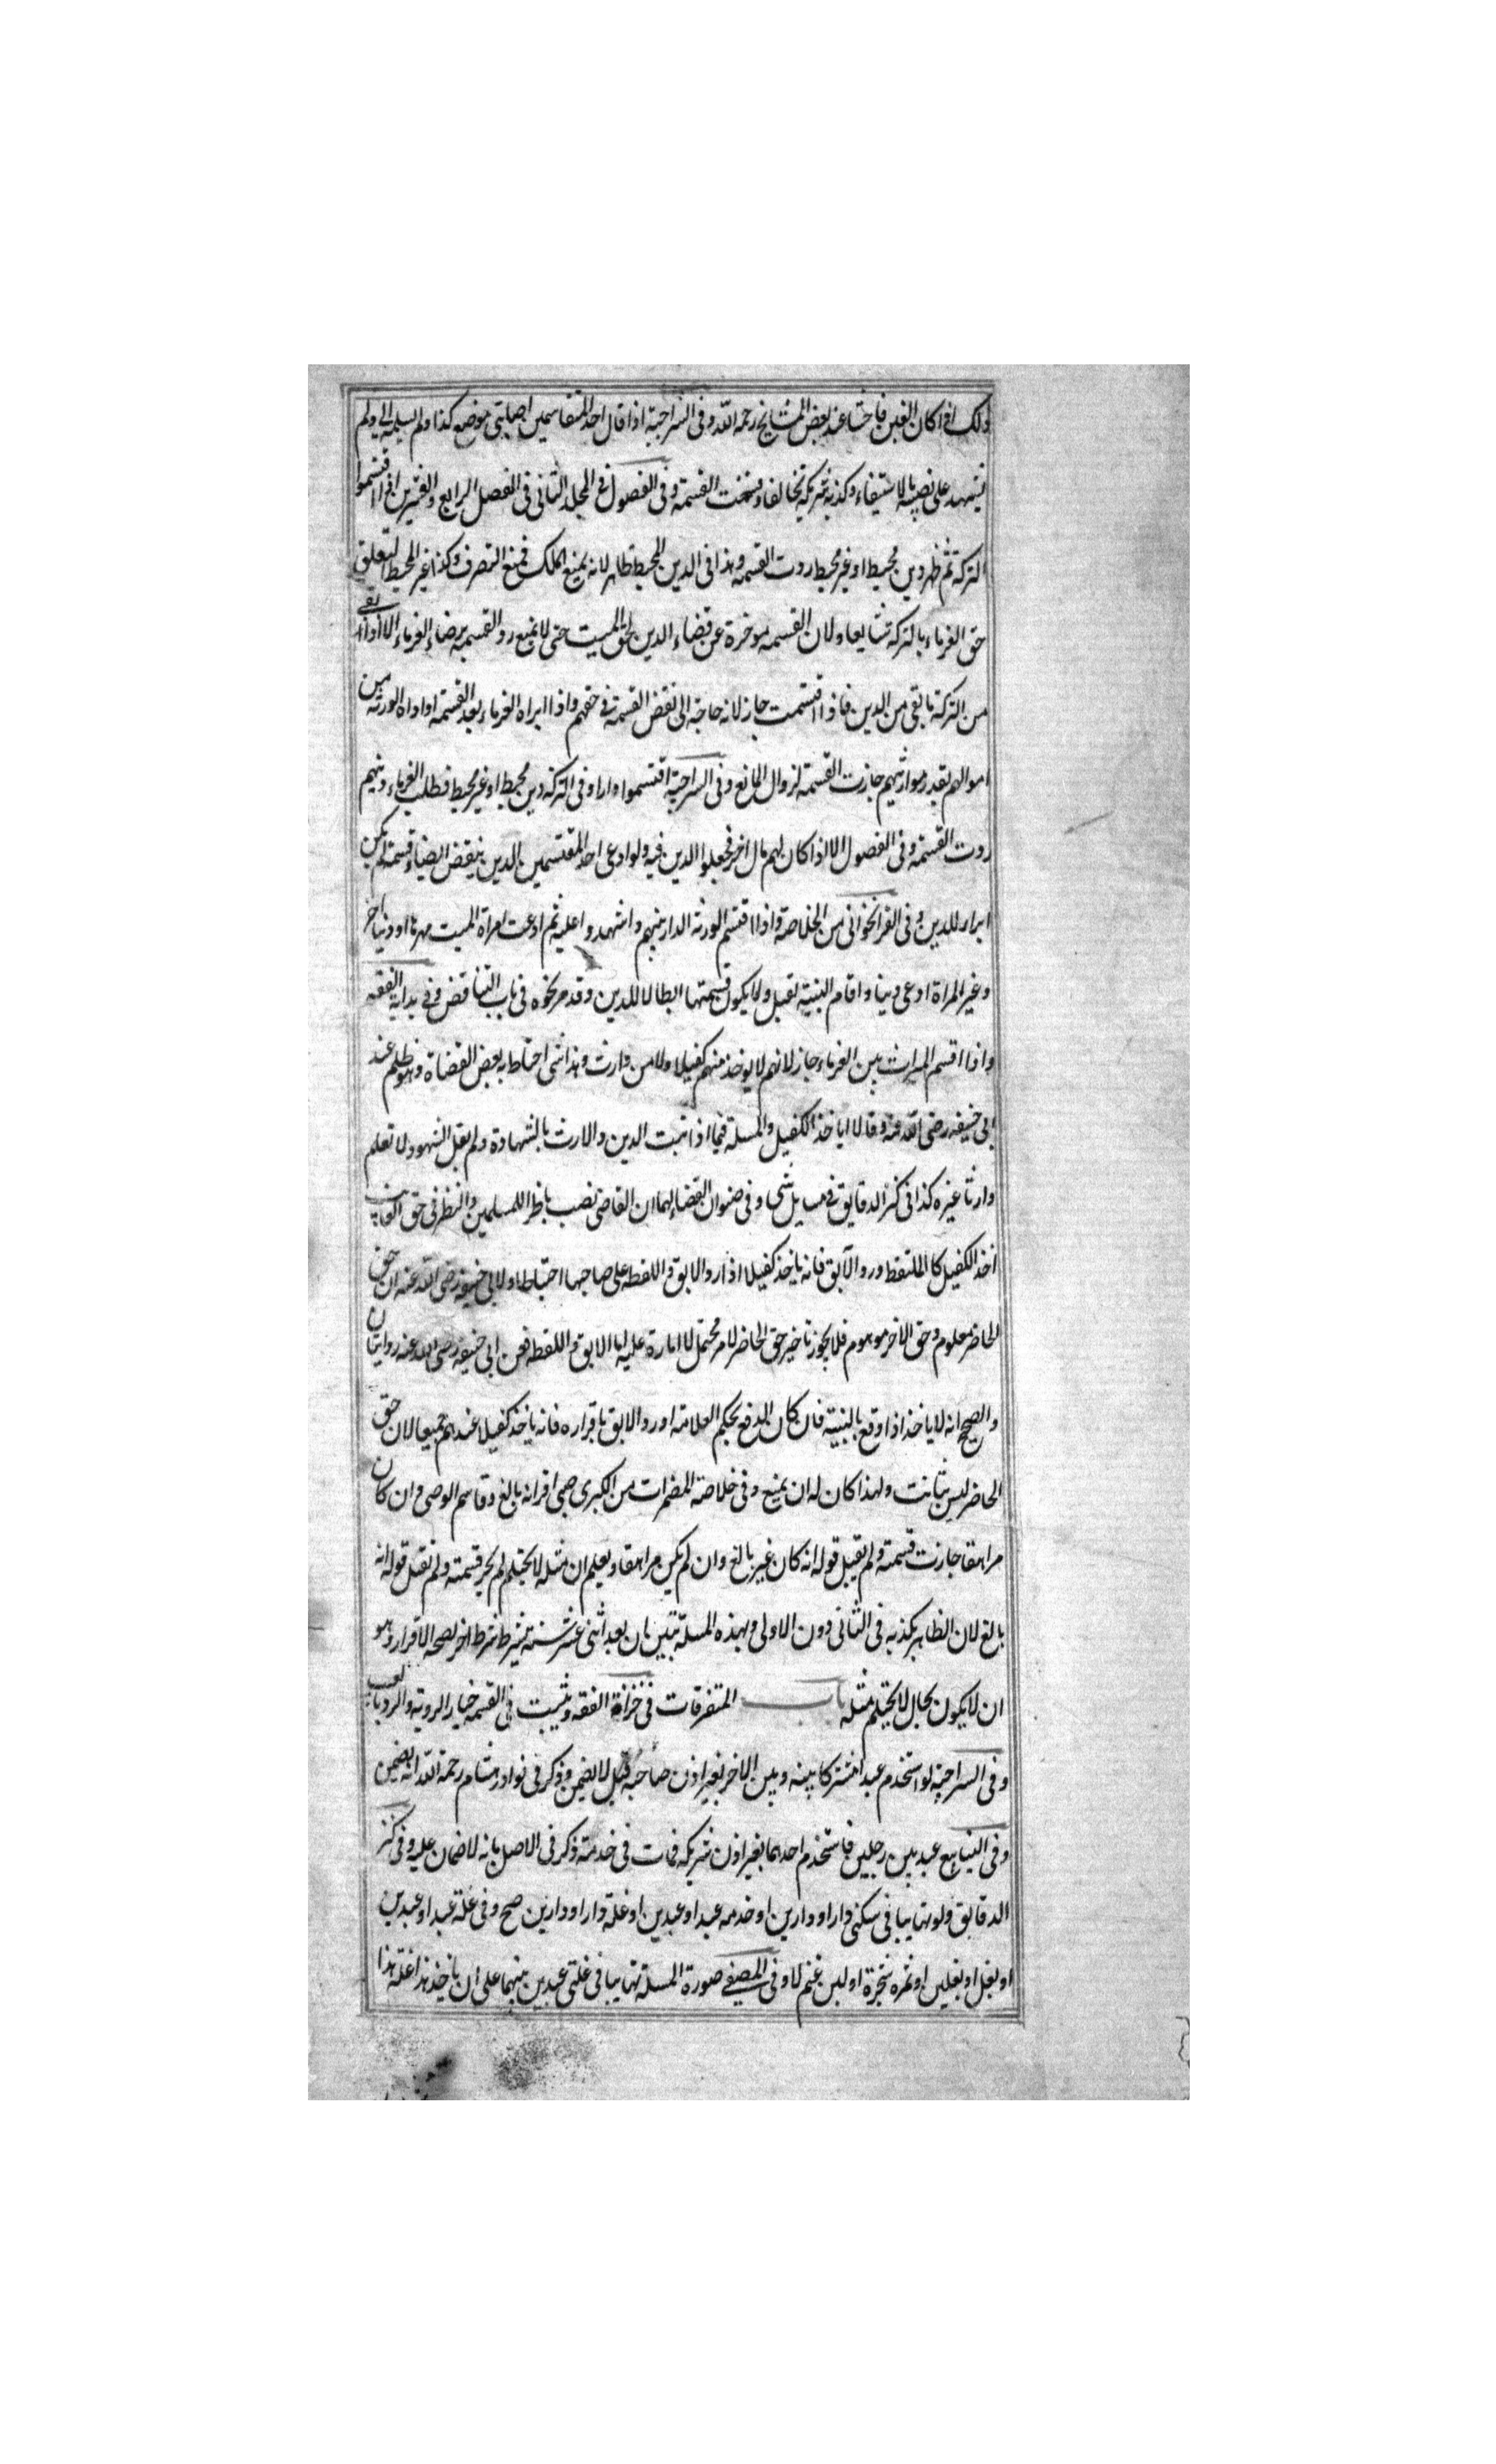 ذلك اذا كان الغبن فاحشا عند بعض المشايخ رحمه الله وفى السراجية اذا قال احد المتقاسمين اصابتى موضع كذا ولم يسلمه الى ولم
يشهد على نصيبه بالاستيفاء وكذبه شريكه تخالفا وفسخت القسمة وفى الفصول فى المجلد الثانى فى الفصل الرابع والعشرين اذا اقتسموا
التركة ثم ظهر دين محيط او غير محيط ردت القسمه وهذا فى الدين المحيط ظاهر لانه يمنع الملك فيمنع التصرف وكذا غير المحيط لتعلق
حق الغرماء بالتركه شايعا ولان القسمه موخرة عن قضاء الدين لحق الميت حتى لا يمنع رد القسمه برضاء الغرماء الا اذا بقى
من التركة ما بقى من الدين فاذا اقتسمت جاز لانه لا حاجة الى نقض القسمة فى حقهم واذا ابراه الغرماء بعد القسمة او اداه الورثه من
اموالهم بقدر مواريثهم جازت القسمة لزوال المانع وفى السراجية اقتسموا دارا وفى التركة دين محيط او غير محيط فطلب الغرماء دينهم
ردت القسمة وفى الفصول الا اذا كان لهم مال اخر فجعلوا الدين فيه ولو ادعى احد المقتسمين الدين ينقض ايضا وقسمة لم يكن
ابراء للدين وفى القراخوانى من الخلاصة واذا اقتسم الورثة الدار بينهم واشهدوا عليه ثم ادعت امراة الميت مهرها او دينا اخر
وغير المراة ادعى دينا واقام البينة تقبل ولا يكون قسمتها ابطالا للدين وقد مر نحوه فى باب التناقض وفى بداية الفقه
واذا اقسم الميراث بين الغرماء جاز لانهم لا يوخذ منهم كفيلا ولا من وارث وهذا شى احتاط به بعض القضاة وهو ظلم عند
ابى حنيفه رضى الله عنه وقالا ياخذ الكفيل والمسلة فيما اذا ثبت الدين والارث بالشهادة ولم يقل الشهود لا نعلم
وارثا غيره كذا فى كنز الدقايق فى مسايل شتى وفى صنوان القضاء لهما ان القاضى نصب ناظرا للمسلمين والنظر فى حق الغايب
اخذ الكفيل كالملتقط ورد الآبق فانه ياخذ كفيلا اذا رد الابق واللقطه على صاحبها احتياطا ولابى حنيفه رضى الله عنه ان حق
الحاضر معلوم وحق الاخر موهوم فلا يجوز تاخير حق الحاضر لامر محتمل لا امارة عليه اما الابق واللقطه فعن ابى حنيفه رضى الله عنه روايتان
والصحيح انه لا ياخذ اذا وقع بالبنية فان كان الدفع بحكم العلامة او رد الابق باقراره فانه ياخذ كفيلا عندهم جميعا لان حق
الحاضر ليس بثابت ولهذا كان له ان يمنع وفى خلاصة المضمرات من الكبرى صبى اقر انه بالغ وقاسم الوصى وان كان
مراهقا جازت قسمته ولم يقبل قوله انه كان غير بالغ وان لم يكن مراهقا ويعلم ان مثله لا يحتلم لم يجز قسمته ولم تقبل قوله انه
بالغ لان الظاهر يكذبه فى الثانى دون الاولى وبهذه المسلة تبين بان بعد اثنى عشر سنة يشترط شرط اخر لصحه الاقرار وهو
ان لا يكون بحال لا يحتلم مثله باب المتفرقات فى خزانة الفقه ويثبت فى القسمه خيار الروية والرد بالعيب
وفى السراجية لو استخدم عبدا مشتركا بينه وبين الاخر بغير اذن صاحبه قيل لا يضمن وذكر فى نوادر هشام رحمة الله انه يضمن
وفى الينابيع عبد بين رجلين فاستخدم احدهما بغير اذن شريكه فمات فى خدمته ذكر فى الاصل بانه لا ضمان عليه وفى كنز
الدقايق ولو تهايبا فى سكنى دار او دارين او خدمه عبد او عبدين او غلة دار او دارين صح وفى غلة عبد او عبدين
او بغل او بغلين او ثمره شجرة او لبن غنم لا وفى المصفى صورة المسلة تهايبا فى غلتى عبدين بينهما على ان ياخذ هذا غلة هذا